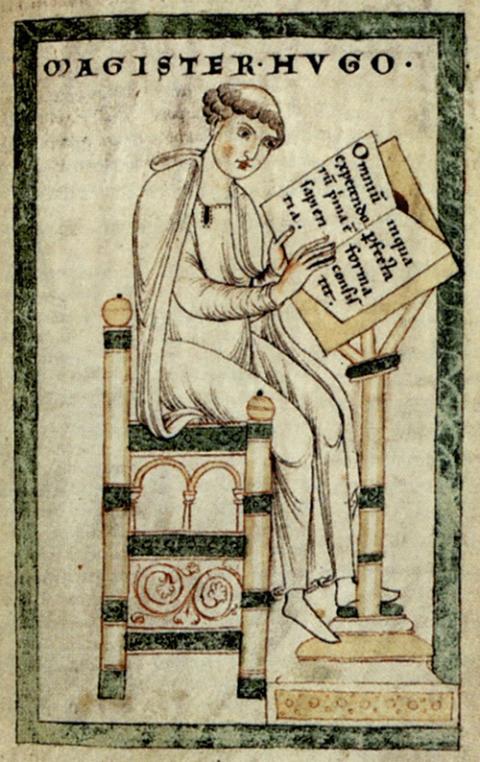 MAGISTER·HVGO·
Omniū
expetendo
rū p'ma ē
sapien
tia.
in qua
pfecta
forma
consis
tit.